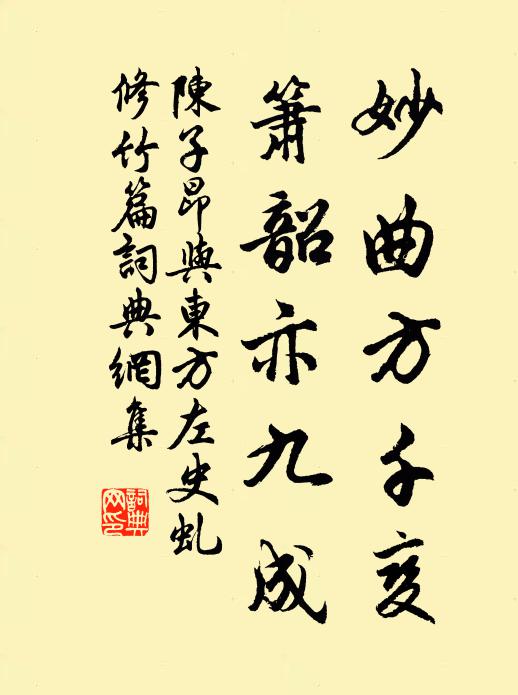 妙曲方千变
簫韶亦九成
陳子昂與東方左史虬
修竹篇詞典網集
詞典网印